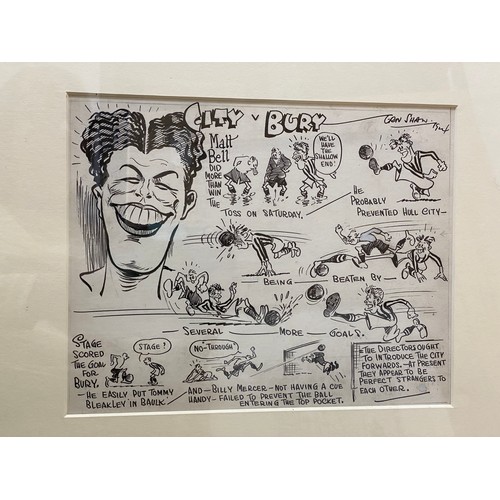 CITY v BURY
ERN SHAW.
MATT
BELL
DID
MORE
THAN WIN
THE
TOSS ON SATURDAY.
WE'LL
HAVE
THE
SHALLOW
END!
HE
PROBABLY
PREVENTED HULL CITY—
— BEING — BEATEN BY —
— SEVERAL — MORE — GOALS.
STAGE
SCORED
THE GOAL
FOR
BURY.
STAGE!
—HE EASILY PUT TOMMY
BLEAKLEY IN BAULK.
NO-THROUGH
—AND—BILLY MERCER—NOT HAVING A CUE
HANDY—FAILED TO PREVENT THE BALL
ENTERING THE TOP POCKET.
THE DIRECTORS OUGHT
TO INTRODUCE THE CITY
FORWARDS.—AT PRESENT
THEY APPEAR TO BE
PERFECT STRANGERS TO
EACH OTHER.